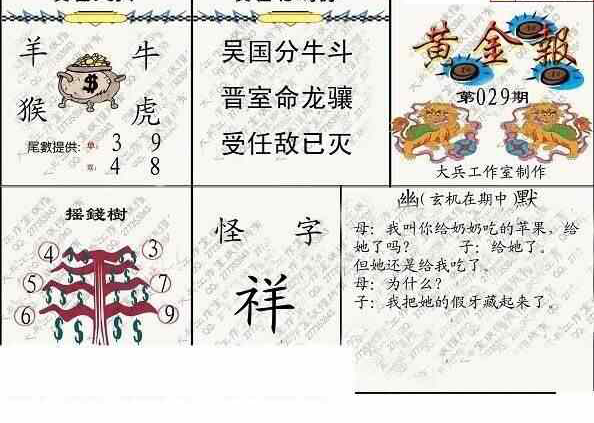 羊 牛
猴 虎
$
尾數提供: 单: 3 9
双: 4 8
吴国分牛斗
晋室命龙骧
受任敌已灭
黄金報
第029期
大兵工作室制作
摇錢樹
④ ③
⑤ ⑦
⑥ ⑨
$ $ $ $
怪 字
祥
幽(玄机在期中)默
母:我叫你给奶奶吃的苹果,给
她了吗? 子:给她了。
但她还是给我吃了。
母:为什么?
子:我把她的假牙藏起来了。